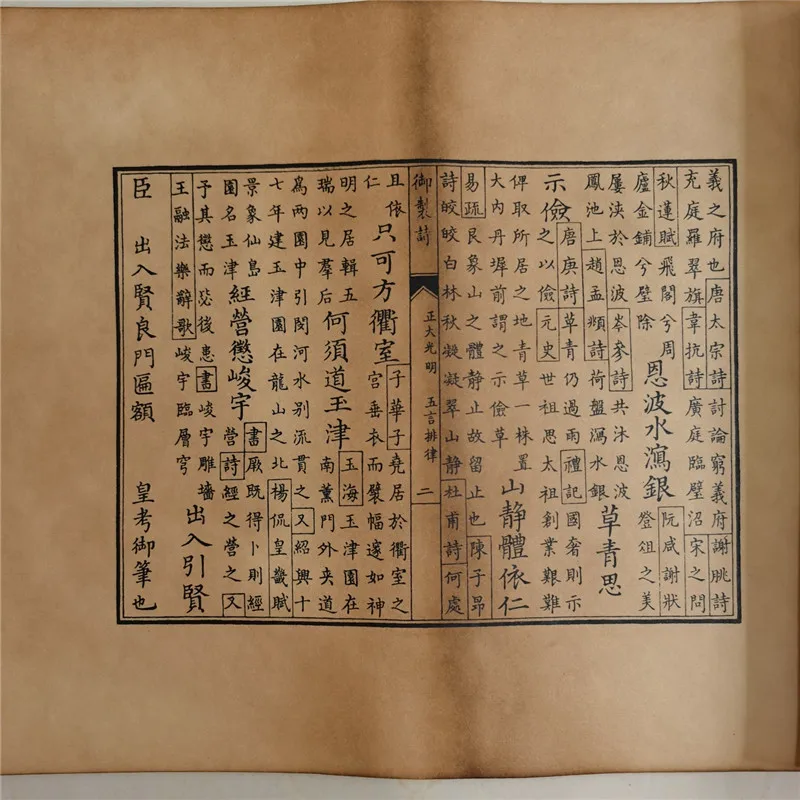 義之府也唐太宗詩討論窮義府謝朓詩
充庭羅翠旗韋抗詩廣庭臨璧沼宋之問
秋蓮賦飛閣兮周
廬金鋪兮壁除
恩波水瀉銀
阮咸謝狀
登俎之美
屢浹於恩波岑參詩共沐恩波
鳳池上趙孟頫詩荷盤瀉水銀
草青思
示儉
唐庚詩草青仍過雨禮記國奢則示
之以儉元史世祖思太祖創業艱難
俾取所居之地青草一株置
大內丹墀前謂之示儉草
山静體依仁
易疏艮象山之體静止故留止也陳子昂
詩皎皎白林秋凝凝翠山静杜甫詩何處
御製詩 正大光明 五言排律 二
且依
仁
只可方衢室
子華子堯居於衢室之
宮垂衣而襞幅邃如神
明之居輯五
瑞以見羣后
何須道玉津
玉海玉津園在
南薰門外夾道
為兩園中引閔河水別流貫之又紹興十
七年建玉津園在龍山之北楊侃皇畿賦
景象仙島
園名玉津
經營懲峻宇
書厥既得卜則經
營詩經之營之又
予其懲而毖後患書峻宇雕墻
王融法樂辭歌峻宇臨層穹
出入引賢
臣
出入賢良門匾額 皇考御筆也